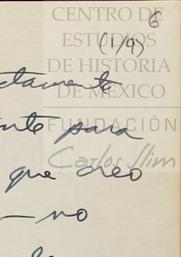 6
(1/9)
CENTRO DE
ESTUDIOS
DE HISTORIA
DE MÉXICO
FUNDACIÓN
Carlos Slim
ctamente
nte para
que creo
— no